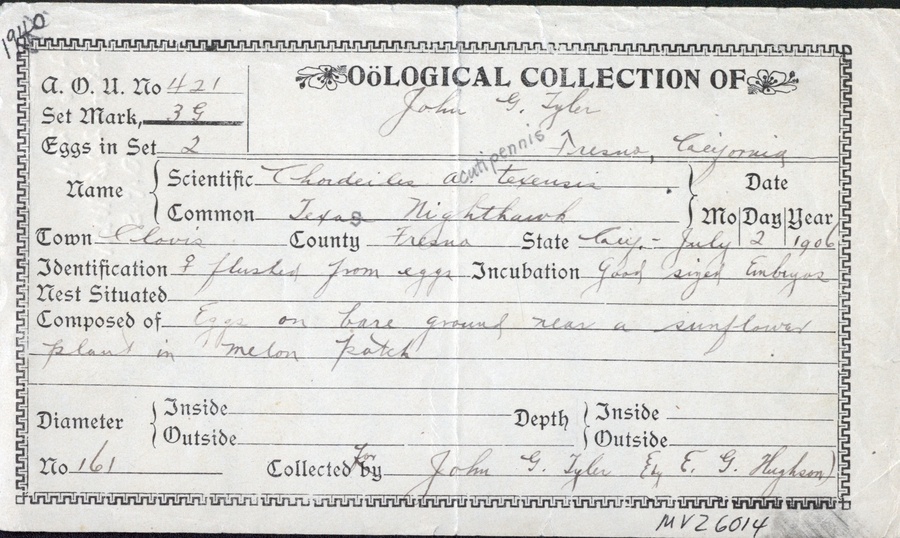 1940
A. O. U. No 421
OöLOGICAL COLLECTION OF
Set Mark, 3G
John G. Tyler
Eggs in Set 2
Fresno, California
Name
Scientific Chordeiles acutipennis texensis
Date
Common Texas Nighthawk
Mo Day Year
Town Clovis County Fresno State Calif - July 2 1906
Identification ♀ flushed from eggs Incubation Good sized Embryos
Nest Situated
Composed of Eggs on bare ground near a sunflower
plant in melon patch
Diameter
Inside
Outside
Depth
Inside
Outside
No 161
Collected For by John G. Tyler (By E. G. Hughson)
MVZ 6014